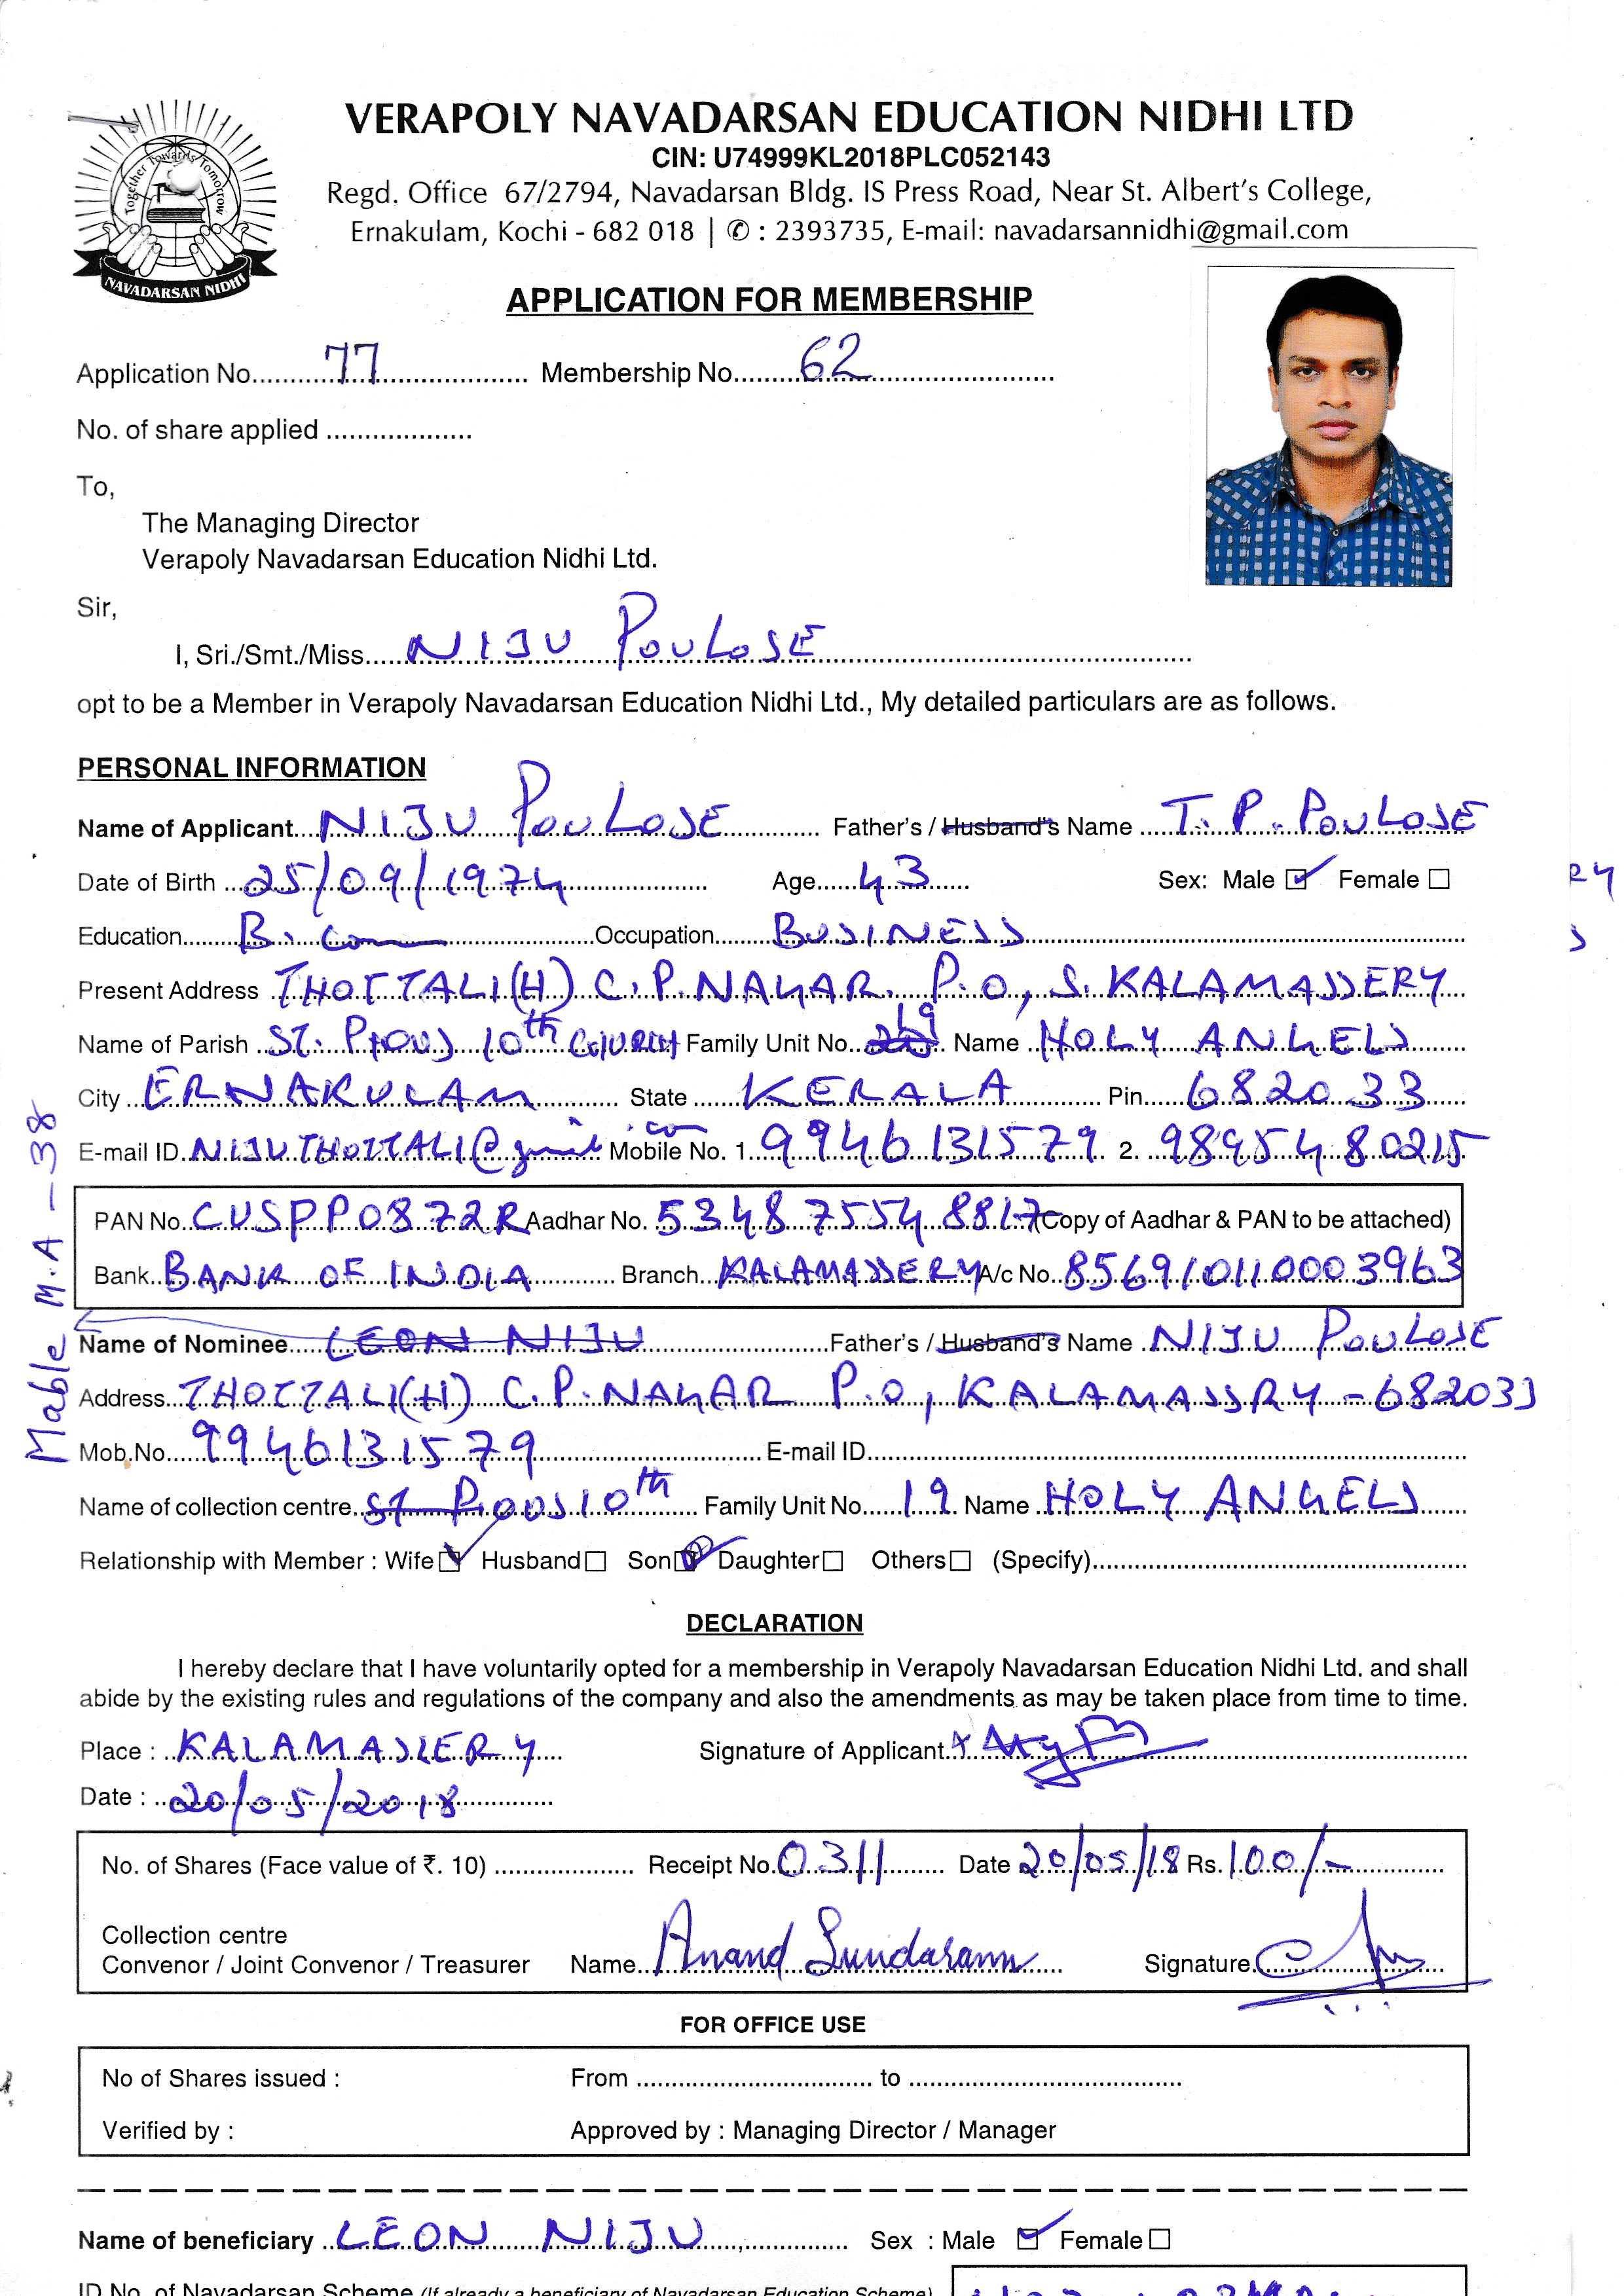 Together Towards Tomorrow
NAVADARSAN NIDHI
VERAPOLY NAVADARSAN EDUCATION NIDHI LTD
CIN: U74999KL2018PLC052143
Regd. Office 67/2794, Navadarsan Bldg. IS Press Road, Near St. Albert's College,
Ernakulam, Kochi - 682 018 | ✆ : 2393735, E-mail: navadarsannidhi@gmail.com
APPLICATION FOR MEMBERSHIP
Application No. 77 Membership No. 62
No. of share applied
To,
The Managing Director
Verapoly Navadarsan Education Nidhi Ltd.
Sir,
I, Sri./Smt./Miss. NIJU POULOSE
opt to be a Member in Verapoly Navadarsan Education Nidhi Ltd., My detailed particulars are as follows.
PERSONAL INFORMATION
Name of Applicant NIJU POULOSE Father's / Husband's Name T. P. POULOSE
Date of Birth 25/09/1974 Age 43 Sex: Male ☑ Female ☐
Education B. Com Occupation BUSINESS
Present Address THOTTALI(H) C.P. NAGAR. P.O, S. KALAMASSERY
Name of Parish ST. PIOUS 10th CHURCH Family Unit No. 19 Name HOLY ANGELS
City ERNAKULAM State KERALA Pin 682033
E-mail ID NIJUTHOTTALI@gmail.com Mobile No. 1. 9946131579 2. 9895480215
PAN No. CUSPP0872R Aadhar No. 5348 7554 8817 (Copy of Aadhar & PAN to be attached)
Bank BANK OF INDIA Branch KALAMASSERY A/c No. 856910110003963
Mable M.A - 38
Name of Nominee LEON NIJU Father's / Husband's Name NIJU POULOSE
Address THOTTALI(H) C.P. NAGAR P.O, KALAMASSRY - 682033
Mob.No. 9946131579 E-mail ID
Name of collection centre St Pious 10th Family Unit No. 19 Name HOLY ANGELS
Relationship with Member : Wife ☑ Husband ☐ Son ☐ Daughter ☐ Others ☐ (Specify)
DECLARATION
I hereby declare that I have voluntarily opted for a membership in Verapoly Navadarsan Education Nidhi Ltd. and shall
abide by the existing rules and regulations of the company and also the amendments as may be taken place from time to time.
Place : KALAMASSERY Signature of Applicant
Date : 20/05/2018
No. of Shares (Face value of ₹. 10) Receipt No. 0311 Date 20/05/18 Rs. 100/-
Collection centre
Convenor / Joint Convenor / Treasurer Name Anand Sundaram Signature
FOR OFFICE USE
No of Shares issued : From to
Verified by : Approved by : Managing Director / Manager
Name of beneficiary LEON NIJU Sex : Male ☑ Female ☐
ID No. of Navadarsan Scheme (If already a beneficiary of Navadarsan Education Scheme)